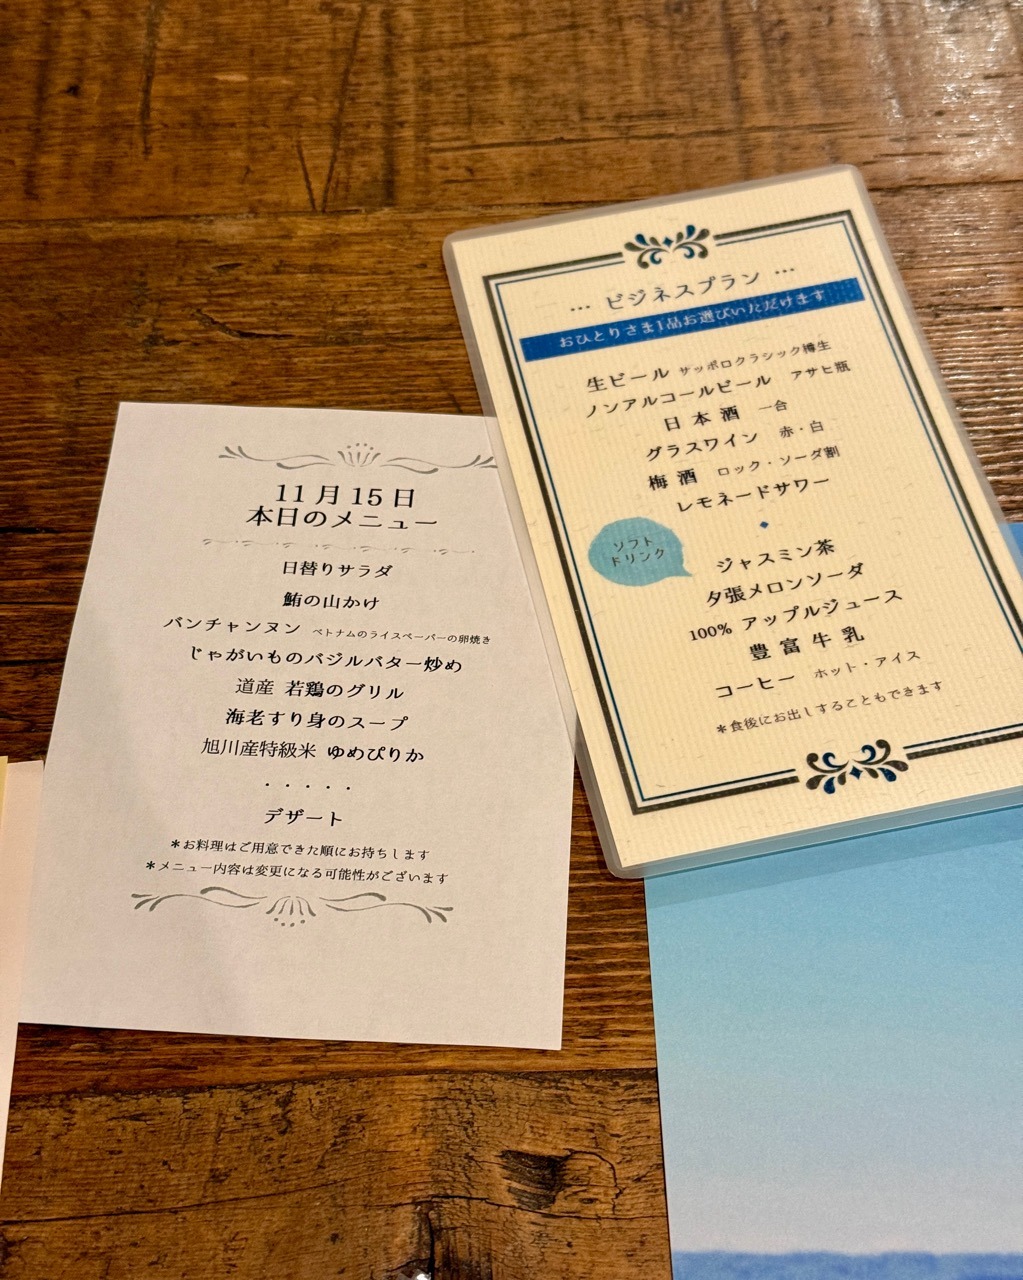 11月15日
本日のメニュー
日替りサラダ
鮪の山かけ
バンチャンヌン ベトナムのライスペーパーの卵焼き
じゃがいものバジルバター炒め
道産 若鶏のグリル
海老すり身のスープ
旭川産特級米 ゆめぴりか
・・・・・
デザート
＊お料理はご用意できた順にお持ちします
＊メニュー内容は変更になる可能性がございます
… ビジネスプラン …
おひとりさま1品お選びいただけます
生ビール サッポロクラシック樽生
ノンアルコールビール アサヒ瓶
日本酒 一合
グラスワイン 赤・白
梅酒 ロック・ソーダ割
レモネードサワー
ソフト
ドリンク
ジャスミン茶
夕張メロンソーダ
100% アップルジュース
豊富牛乳
コーヒー ホット・アイス
＊食後にお出しすることもできます